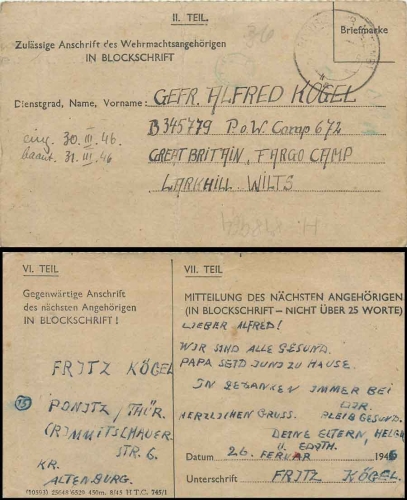 II. TEIL.
Zulässige Anschrift des Wehrmachtsangehörigen
IN BLOCKSCHRIFT
Briefmarke
Dienstgrad, Name, Vorname: GEFR. ALFRED KÖGEL
B 345779 P.o.W. Camp 672
eing. 30. III. 46.
beant. 31. III. 46
GREAT BRITAIN, FARGO CAMP
LARKHILL WILTS
VI. TEIL
Gegenwärtige Anschrift
des nächsten Angehörigen
IN BLOCKSCHRIFT!
FRITZ KÖGEL
PONITZ/THÜR.
STR. 6
KR.
ALTENBURG.
VII. TEIL
MITTEILUNG DES NÄCHSTEN ANGEHÖRIGEN
(IN BLOCKSCHRIFT – NICHT ÜBER 25 WORTE)
LIEBER ALFRED!
WIR SIND ALLE GESUND.
PAPA SEID JUNI ZU HAUSE.
IN GEDANKEN IMMER BEI
DIR.
HERZLICHEN GRUSS. BLEIB GESUND.
DEINE ELTERN, HELGA
U. EDITH.
Datum 26. FERUAR 1946
Unterschrift FRITZ KÖGEL.